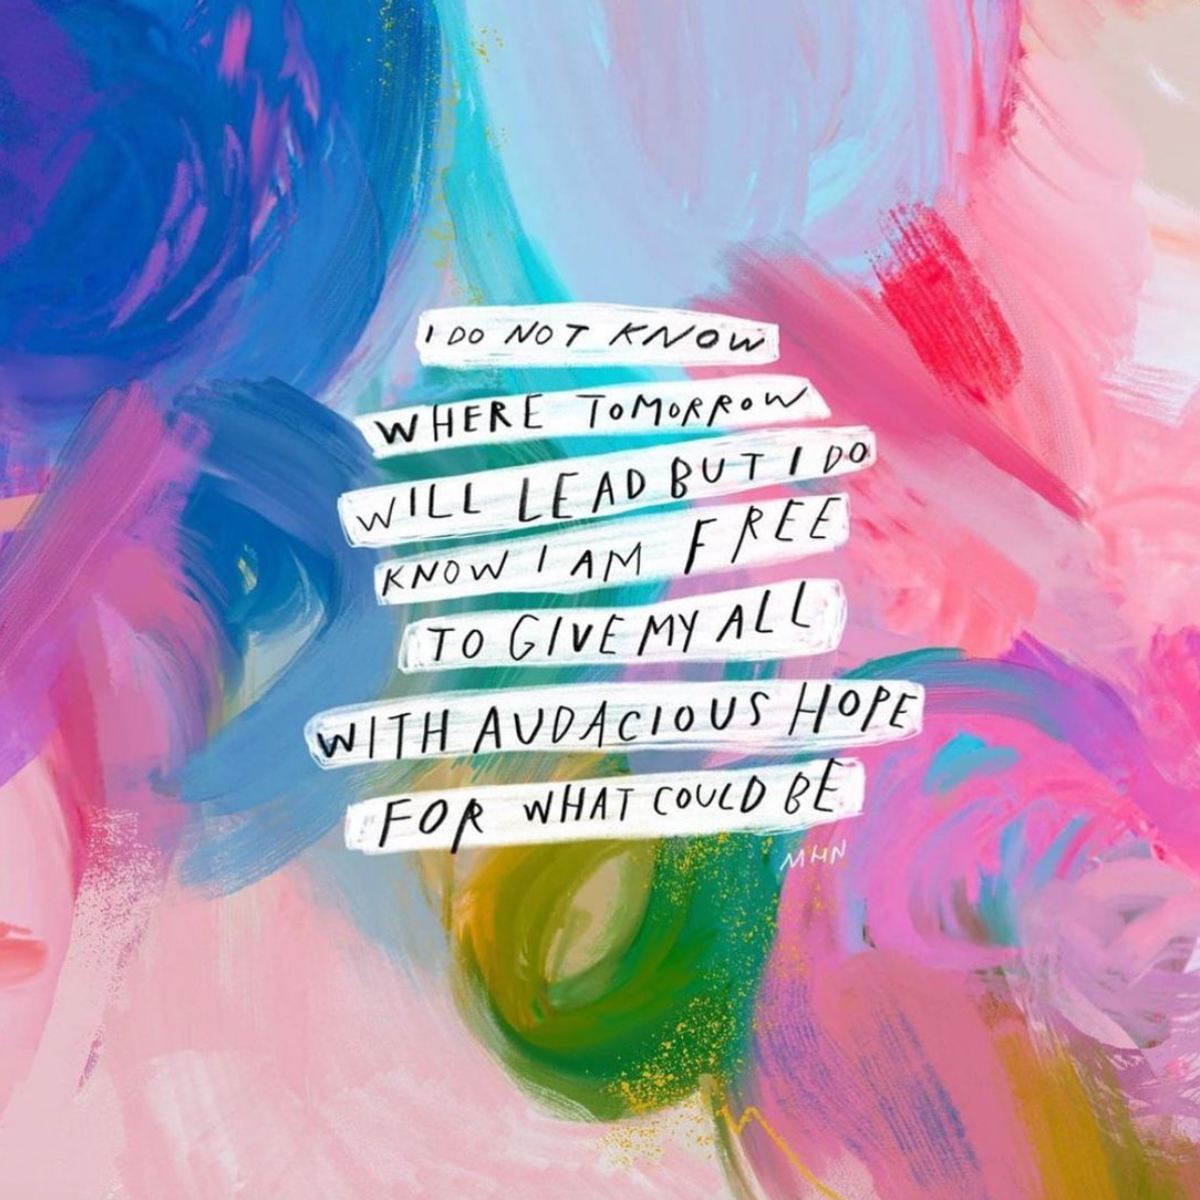 I DO NOT KNOW
WHERE TOMORROW
WILL LEAD BUT I DO
KNOW I AM FREE
TO GIVE MY ALL
WITH AUDACIOUS HOPE
FOR WHAT COULD BE
MHN